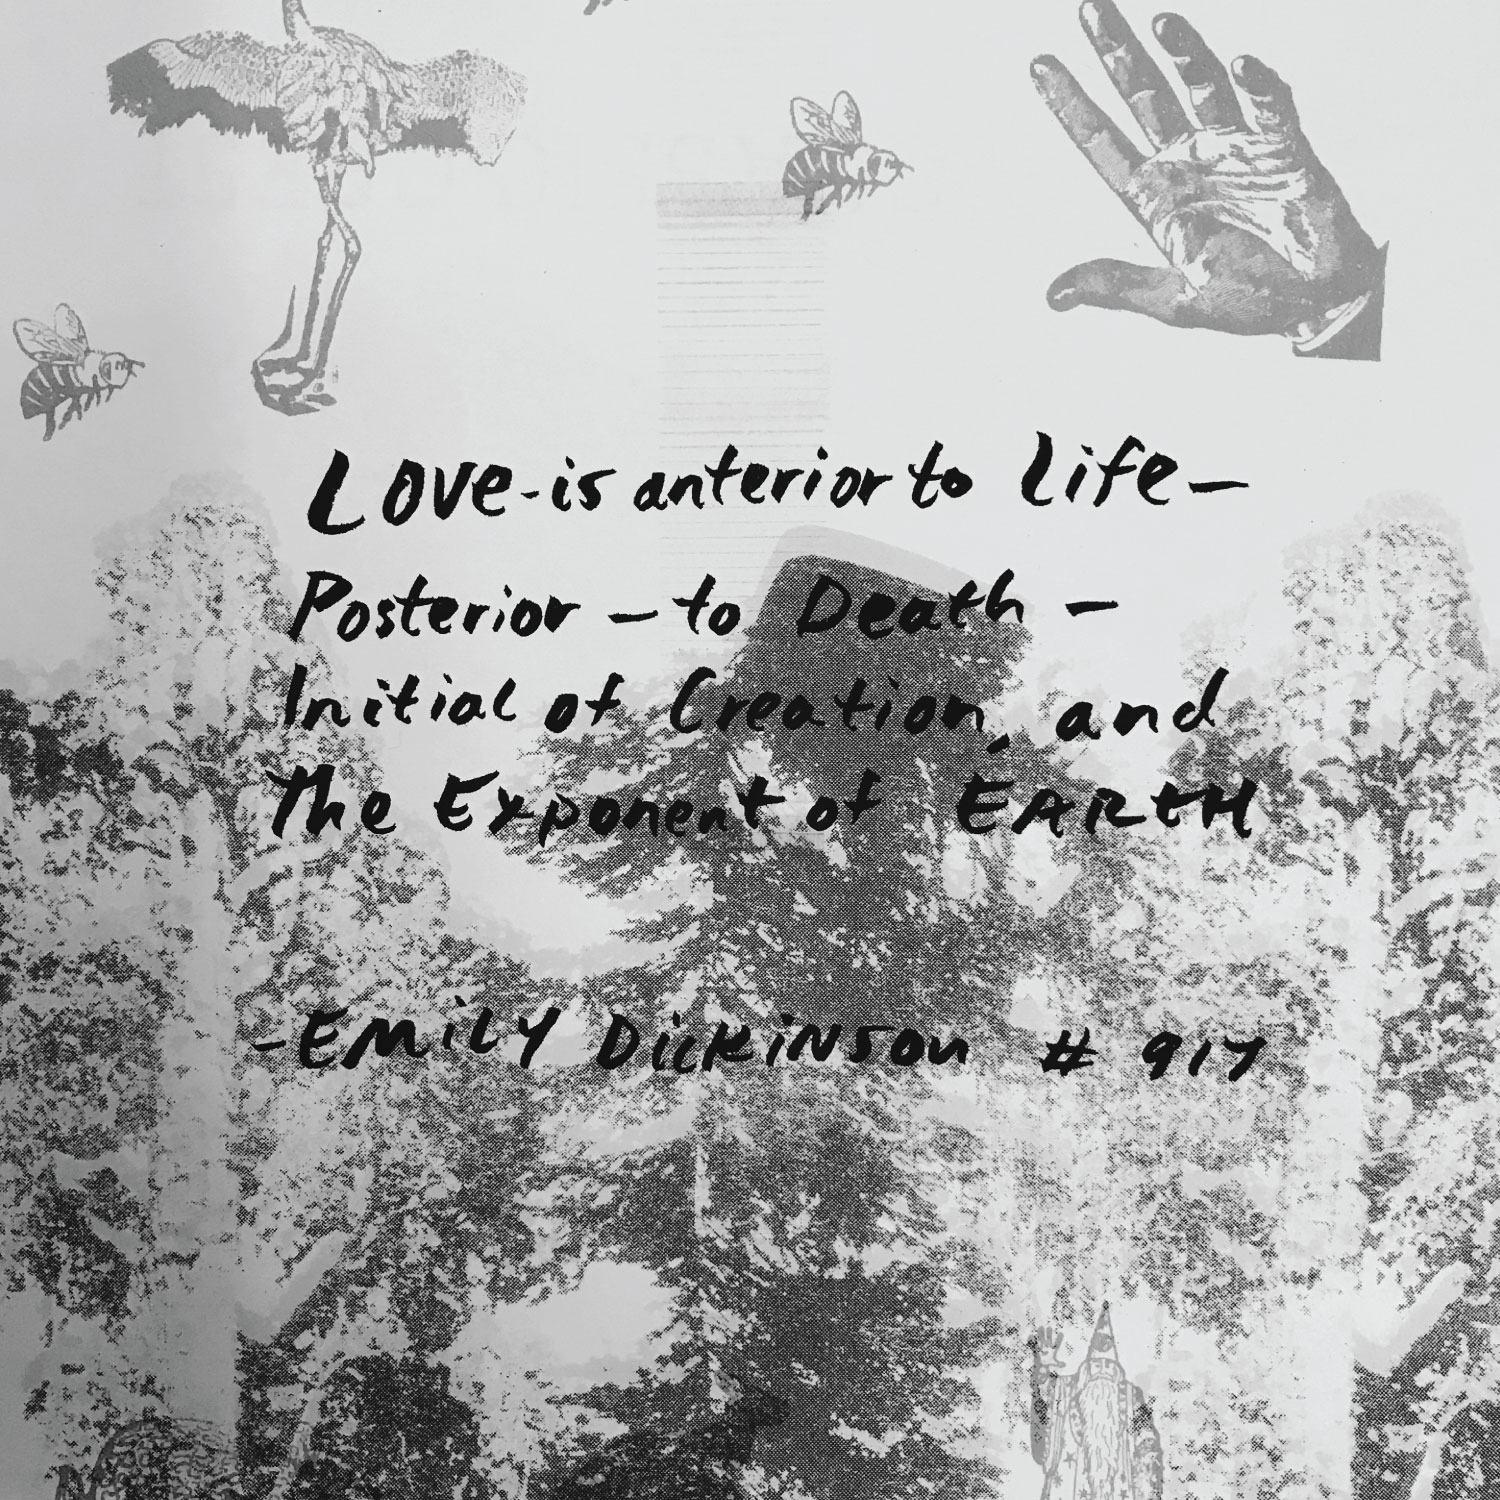 Love-is anterior to Life—
Posterior — to Death —
Initial of Creation, and
The Exponent of EARTH
-EMILY DICKINSON # 917